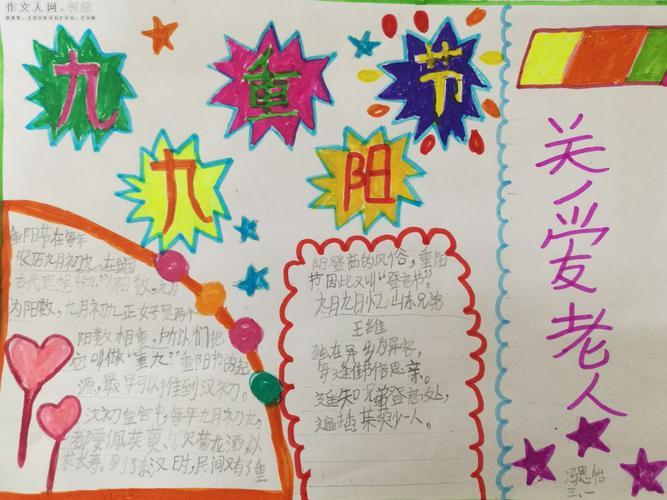 作文人网
www.zuowenren.com
九九重阳节
关爱老人
重阳节在每年
农历九月初九。在我国
古代思想中"九"为阳数，九月
为阳数，九月初九正好是两个
阳数相重，所以人们把
它叫做"重九"重阳节的起
源，最早可以推到汉初。
汉初皇宫中，每年九月初九，
都要佩茱萸、饮菊花酒，以
求长寿。到了东汉时，民间又有了重
阳登高的风俗，重阳
节因此又叫"登高节"。
九月九日忆山东兄弟
王维
独在异乡为异客，
每逢佳节倍思亲。
遥知兄弟登高处，
遍插茱萸少一人。
冯思怡
三、